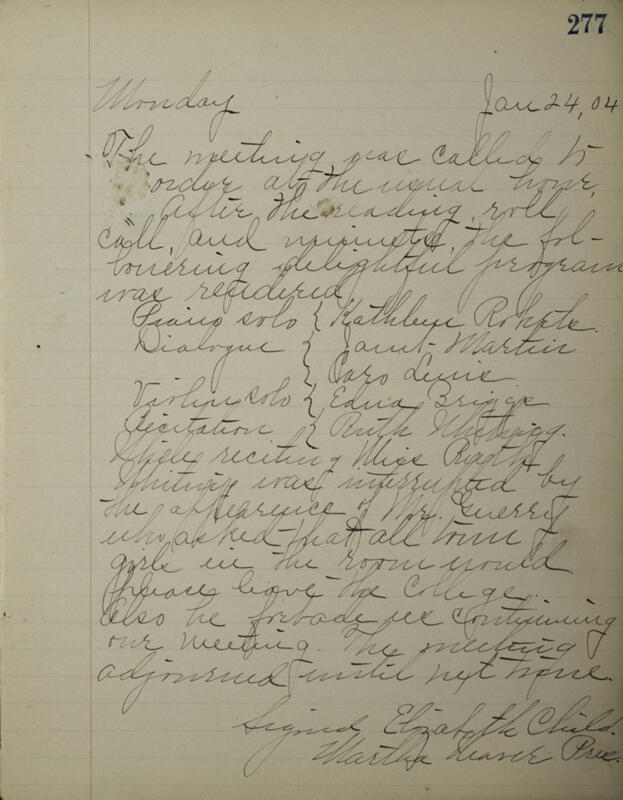 277
Monday Jan 24, 04
The meeting was called to
order at the usual hour.
After the reading, roll
call, and minutes, the fol-
lowering delightful program
was rendered,
Piano solo { Kathleen
Dialogue { Janet Martin
{ Caro Lewis
Violin solo { Edna Briggs
Recitation { Ruth Whiting.
While reciting Miss Ruth
Whiting was interrupted by
the appearence of Mr. Guerry
who asked that all town
girls in the room would
please leave the college.
Also he forbade us continuing
our meeting. The meeting
adjourned until next time.
Signed Elizabeth Child.
Martha Pres.